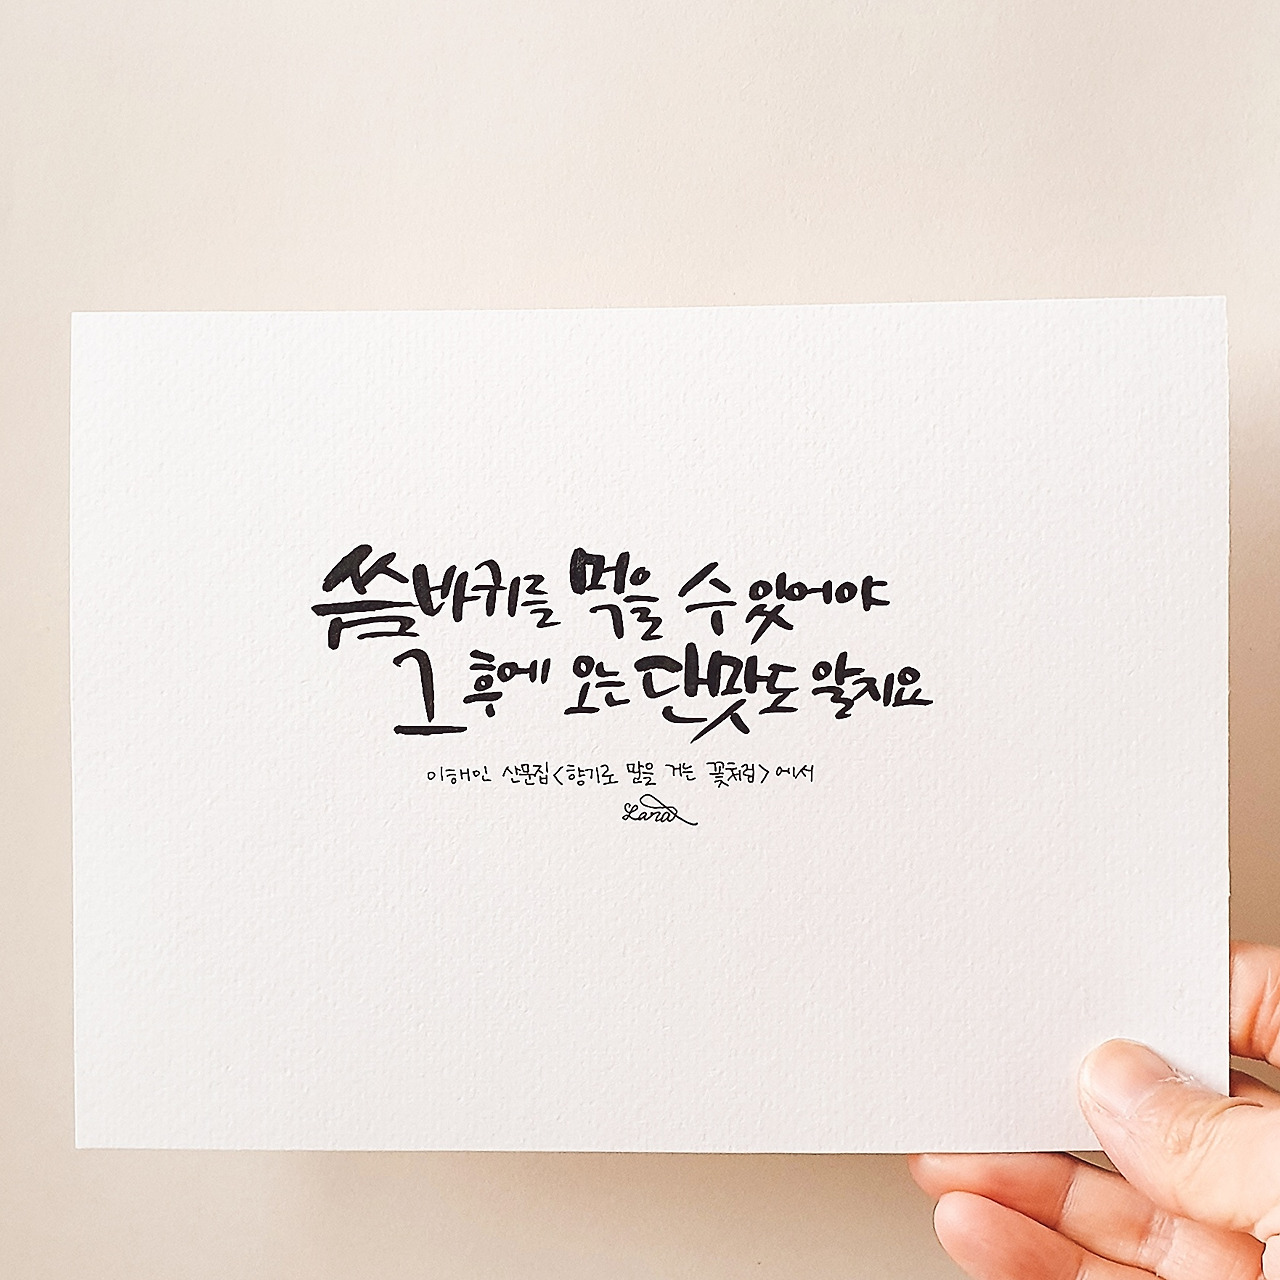 씀바귀를 먹을 수 있어야
그 후에 오는 단맛도 알지요
이해인 산문집<향기로 말을 거는 꽃처럼>에서
Lara